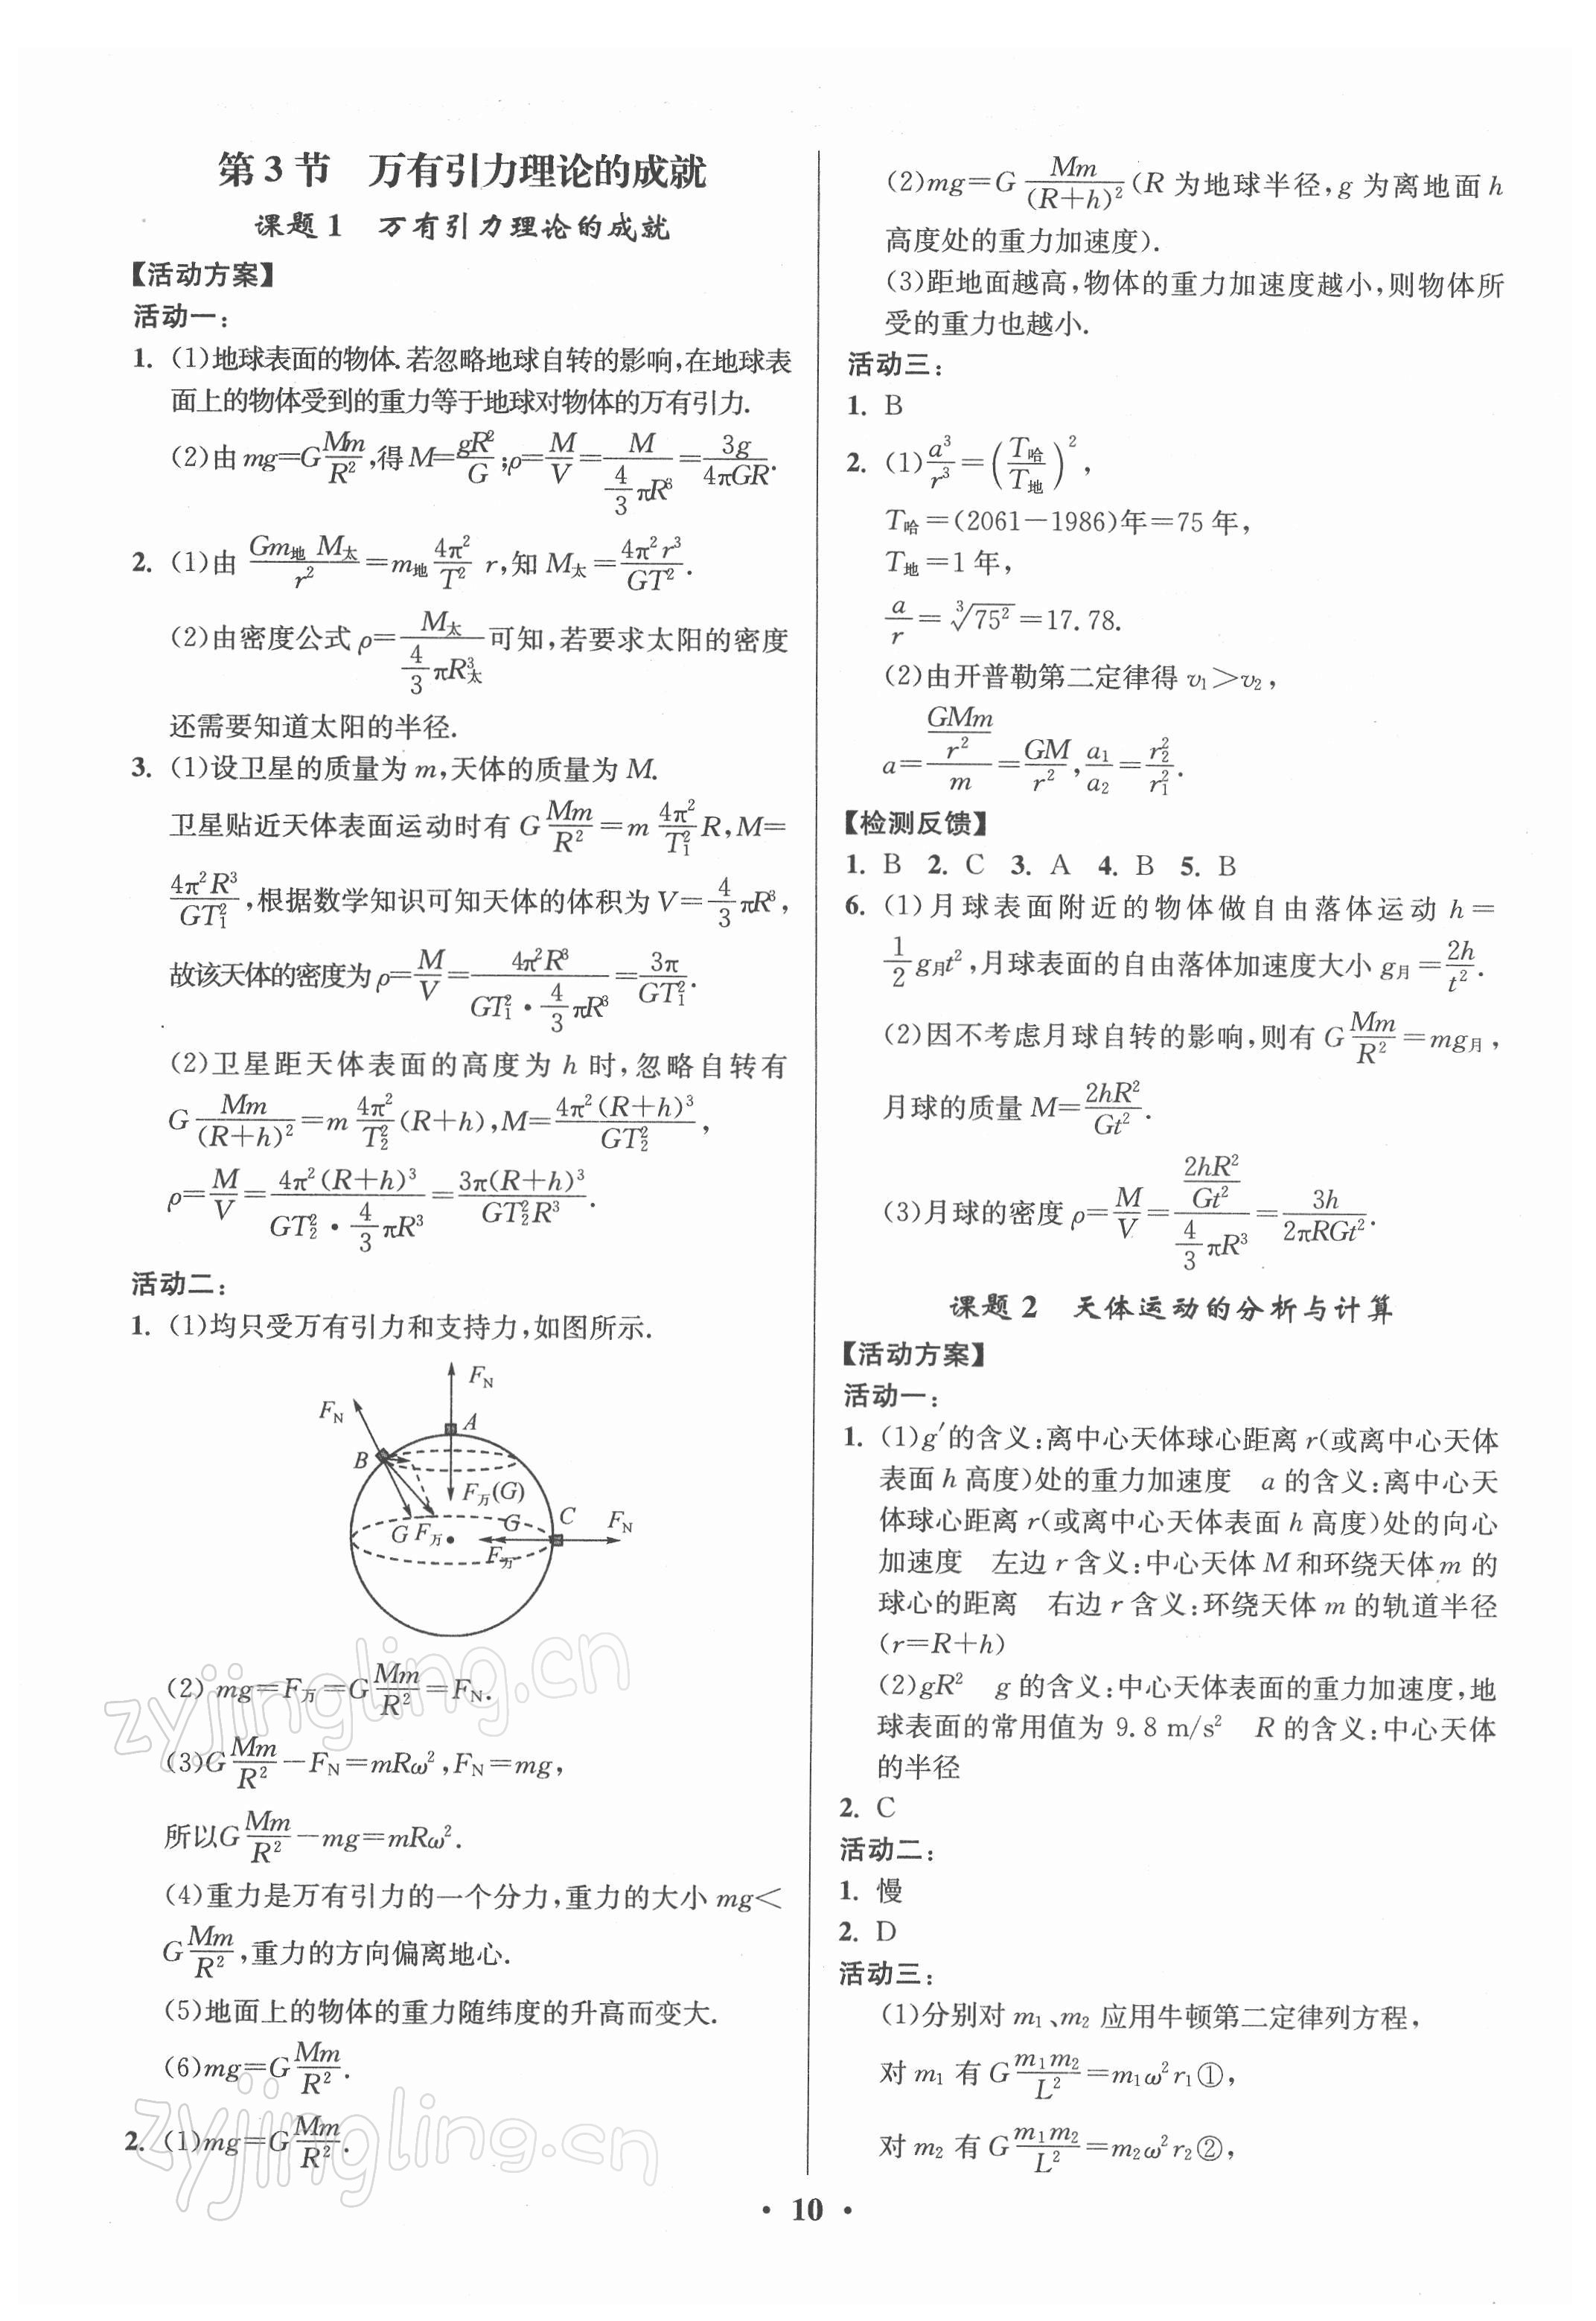 第3节 万有引力理论的成就
课题1 万有引力理论的成就
【活动方案】
活动一:
1. (1)地球表面的物体.若忽略地球自转的影响,在地球表
面上的物体受到的重力等于地球对物体的万有引力.
(2)由 mg=G\frac{Mm}{R²},得 M=\frac{gR²}{G};ρ=\frac{M}{V}=\frac{M}{\frac{4}{3}πR³}=\frac{3g}{4πGR}.
2. (1)由 \frac{Gm地 M太}{r²}=m地\frac{4π²}{T²} r,知 M太=\frac{4π²r³}{GT²}.
(2)由密度公式 ρ=\frac{M太}{\frac{4}{3}πR太³}可知,若要求太阳的密度
还需要知道太阳的半径.
3. (1)设卫星的质量为 m,天体的质量为 M.
卫星贴近天体表面运动时有 G\frac{Mm}{R²}=m\frac{4π²}{T₁²}R,M=
\frac{4π²R³}{GT₁²},根据数学知识可知天体的体积为 V=\frac{4}{3}πR³,
故该天体的密度为 ρ=\frac{M}{V}=\frac{4π²R³}{GT₁²·\frac{4}{3}πR³}=\frac{3π}{GT₁²}.
(2)卫星距天体表面的高度为 h 时,忽略自转有
G\frac{Mm}{(R+h)²}=m\frac{4π²}{T₂²}(R+h),M=\frac{4π²(R+h)³}{GT₂²},
ρ=\frac{M}{V}=\frac{4π²(R+h)³}{GT₂²·\frac{4}{3}πR³}=\frac{3π(R+h)³}{GT₂²R³}.
活动二:
1. (1)均只受万有引力和支持力,如图所示.
F_N
F_N
A
B
F万(G)
C
G
F_N
G F万
F万
(2) mg=F万=G\frac{Mm}{R²}=F_N.
(3)G\frac{Mm}{R²}-F_N=mRω²,F_N=mg,
所以G\frac{Mm}{R²}-mg=mRω².
(4)重力是万有引力的一个分力,重力的大小 mg<
G\frac{Mm}{R²},重力的方向偏离地心.
(5)地面上的物体的重力随纬度的升高而变大.
(6)mg=G\frac{Mm}{R²}.
2. (1)mg=G\frac{Mm}{R²}.
(2)mg=G\frac{Mm}{(R+h)²}(R 为地球半径,g 为离地面 h
高度处的重力加速度).
(3)距地面越高,物体的重力加速度越小,则物体所
受的重力也越小.
活动三:
1. B
2. (1)\frac{a³}{r³}=(\frac{T哈}{T地})²,
T哈=(2061-1986)年=75 年,
T地=1 年,
\frac{a}{r}=\sqrt[3]{75²}=17.78.
(2)由开普勒第二定律得 v₁>v₂,
a=\frac{\frac{GMm}{r²}}{m}=\frac{GM}{r²},\frac{a₁}{a₂}=\frac{r₂²}{r₁²}.
【检测反馈】
1. B 2. C 3. A 4. B 5. B
6. (1)月球表面附近的物体做自由落体运动 h=
\frac{1}{2}g月t²,月球表面的自由落体加速度大小 g月=\frac{2h}{t²}.
(2)因不考虑月球自转的影响,则有 G\frac{Mm}{R²}=mg月,
月球的质量 M=\frac{2hR²}{Gt²}.
(3)月球的密度 ρ=\frac{M}{V}=\frac{\frac{2hR²}{Gt²}}{\frac{4}{3}πR³}=\frac{3h}{2πRGt²}.
课题2 天体运动的分析与计算
【活动方案】
活动一:
1. (1)g′的含义:离中心天体球心距离 r(或离中心天体
表面 h 高度)处的重力加速度 a 的含义:离中心天
体球心距离 r(或离中心天体表面 h 高度)处的向心
加速度 左边 r 含义:中心天体 M 和环绕天体 m 的
球心的距离 右边 r 含义:环绕天体 m 的轨道半径
(r=R+h)
(2)gR² g 的含义:中心天体表面的重力加速度,地
球表面的常用值为 9.8 m/s² R 的含义:中心天体
的半径
2. C
活动二:
1. 慢
2. D
活动三:
(1)分别对 m₁、m₂ 应用牛顿第二定律列方程,
对 m₁ 有 G\frac{m₁m₂}{L²}=m₁ω²r₁①,
对 m₂ 有 G\frac{m₁m₂}{L²}=m₂ω²r₂②,
· 10 ·
zyjingling.cn
zyjingling.cn